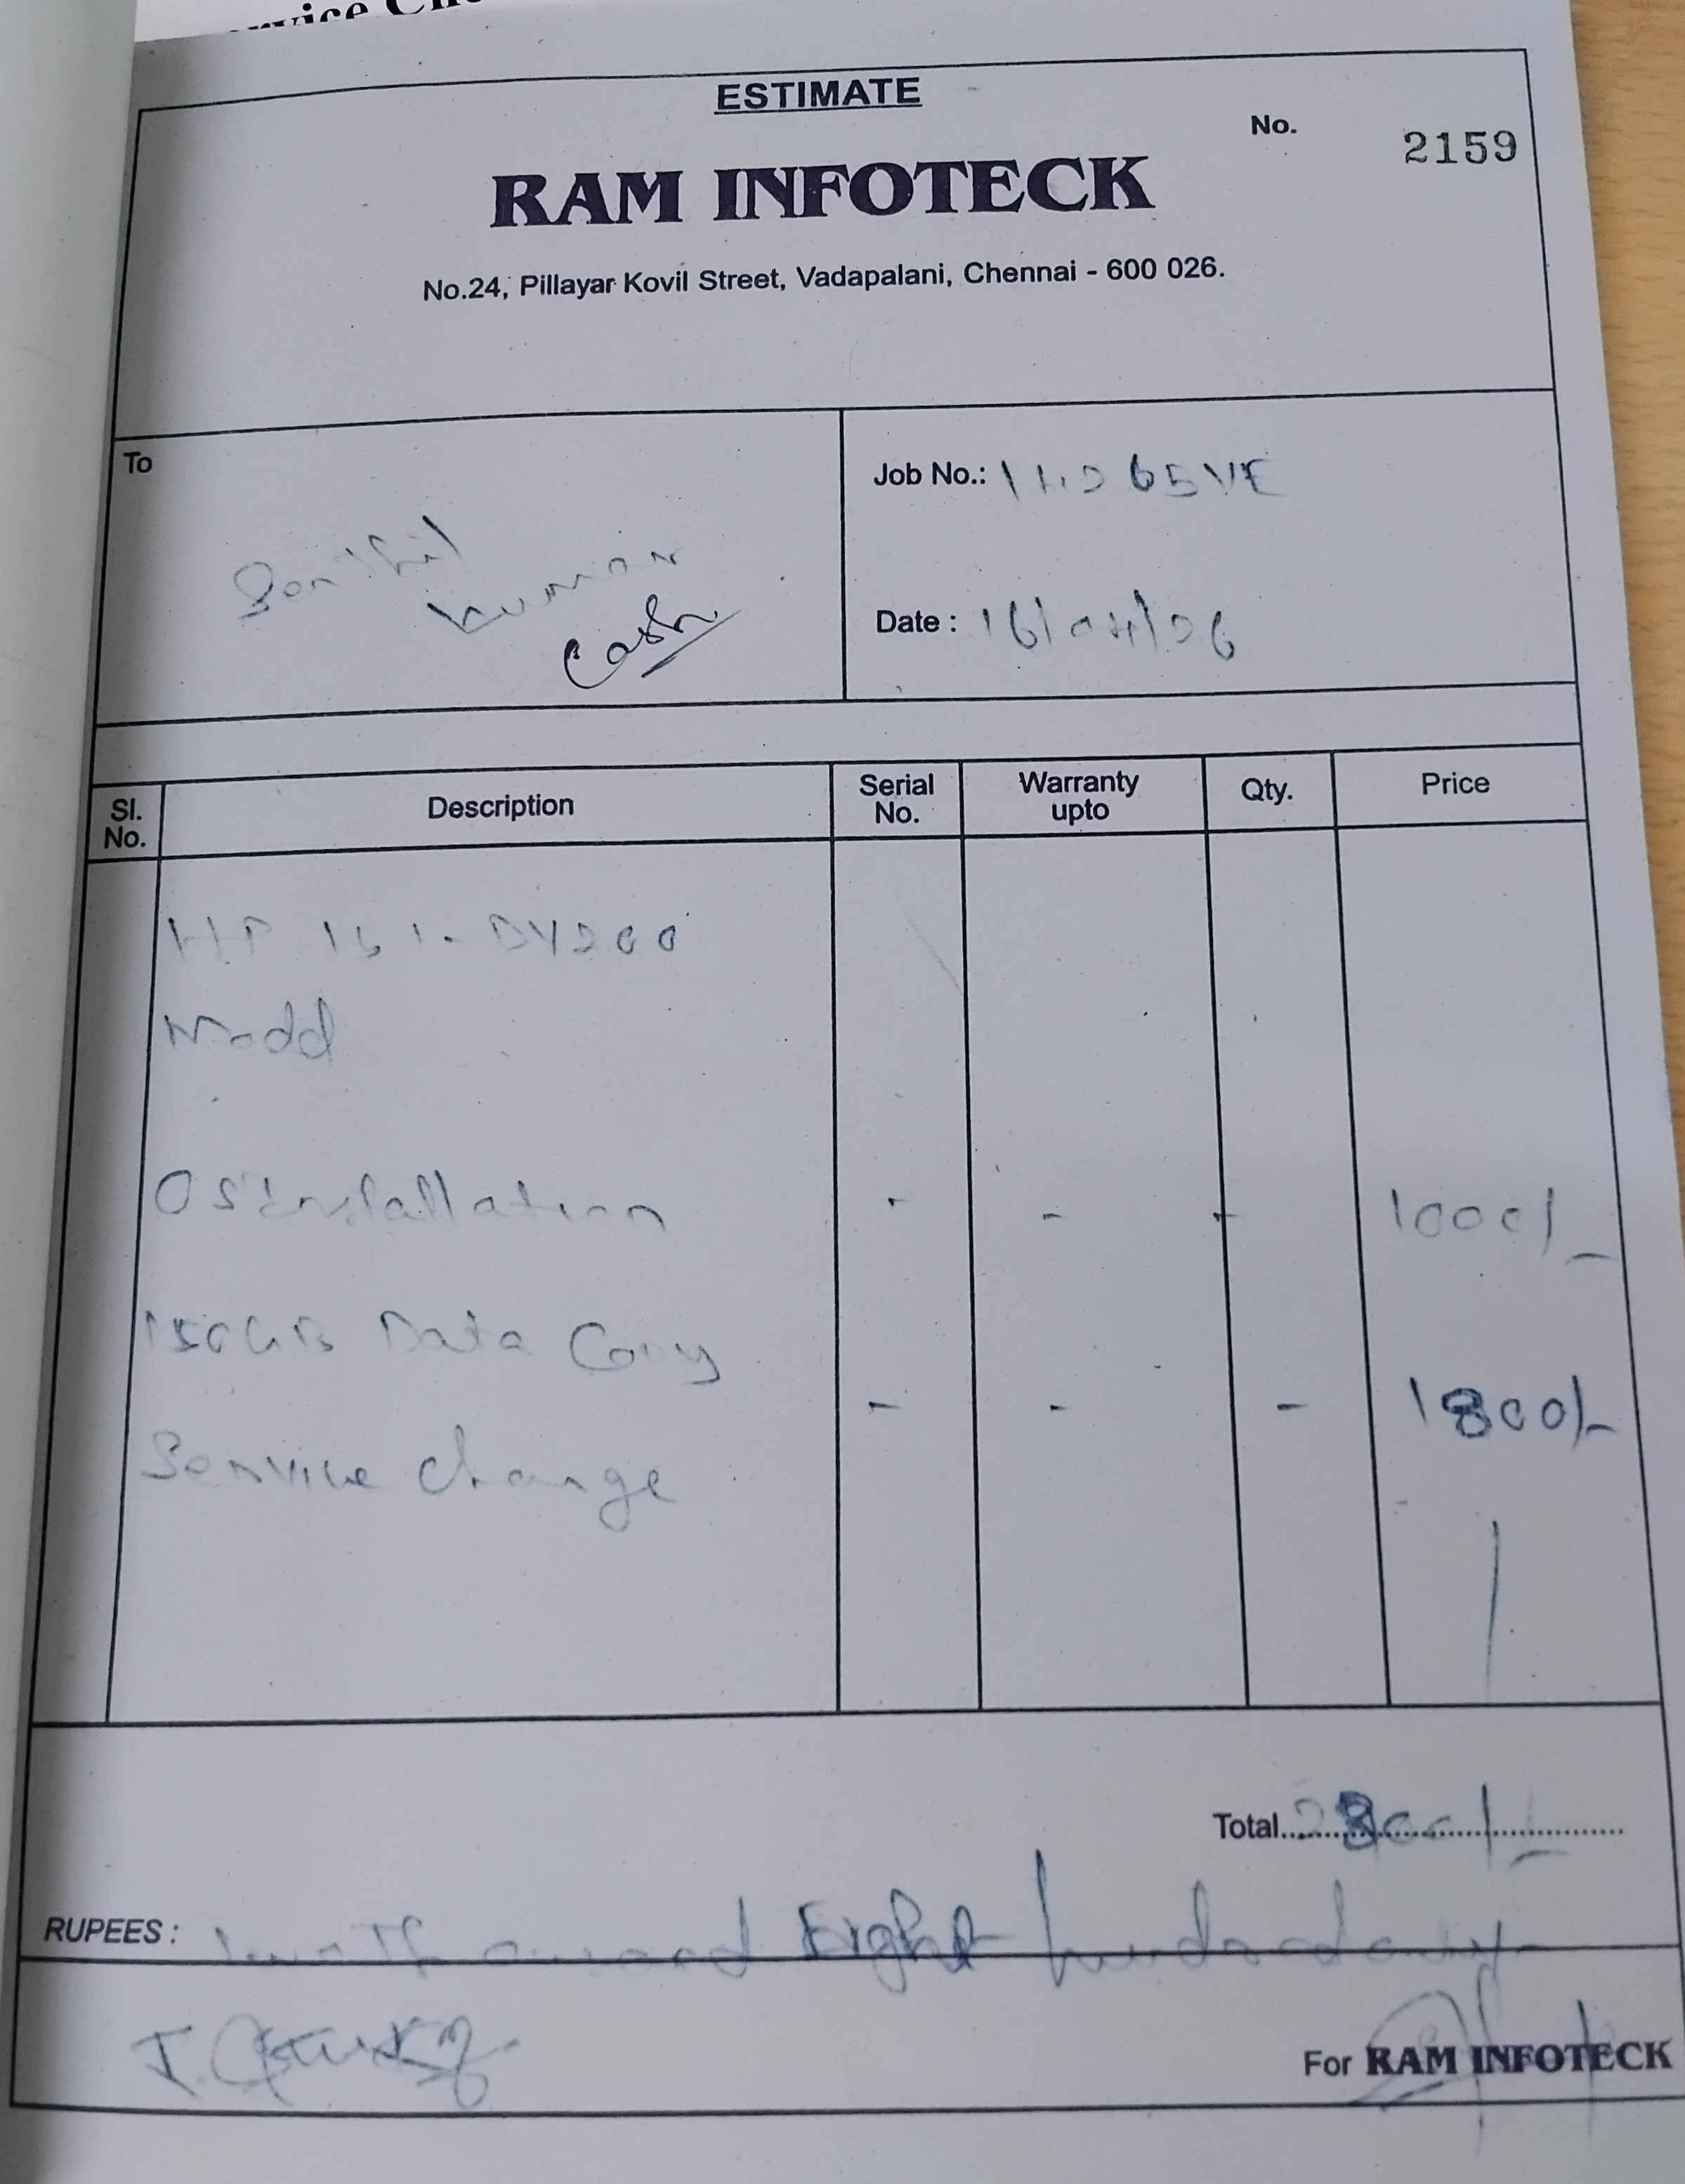 ESTIMATE
No. 2159
RAM INFOTECK
No.24, Pillayar Kovil Street, Vadapalani, Chennai - 600 026.
To
Job No.:
Senthil
kumar
Cash
Date : 16/04/26
Sl. No. Description Serial No. Warranty upto Qty. Price
HP
Model
OS Installation - - - 1000/-
150GB Data Copy
- - - 1800/-
Service charge
Total 2800/-
RUPEES : Two Thousand Eight hundred only
For RAM INFOTECK